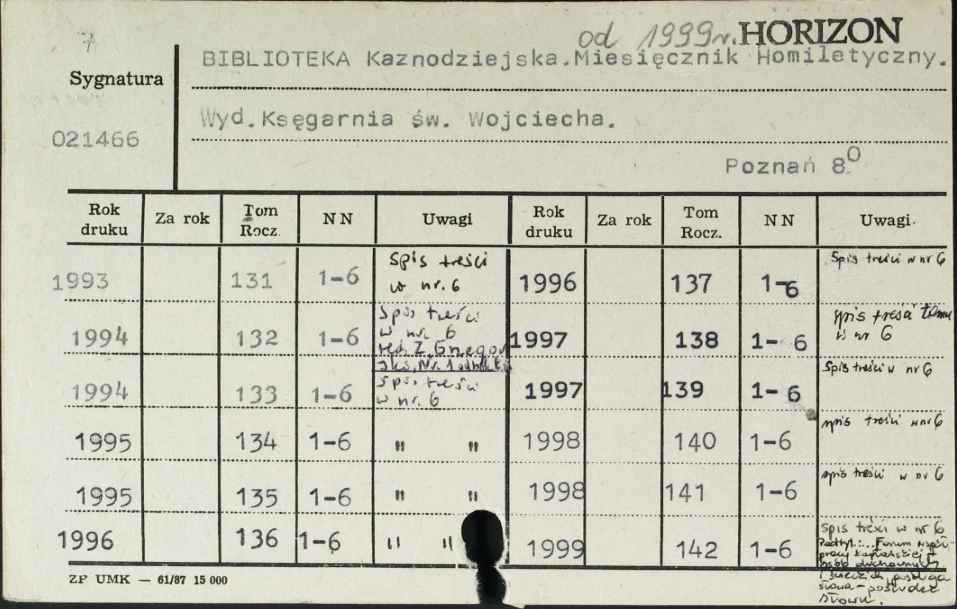 7
od 1999r. HORIZON
Sygnatura
BIBLIOTEKA Kaznodziejska.Miesięcznik Homiletyczny.
021466
Wyd.Księgarnia św. Wojciecha.
Poznań 8⁰
Rok druku Za rok Tom Rocz. N N Uwagi Rok druku Za rok Tom Rocz. N N Uwagi
1993 131 1-6 Spis treści w nr. 6 1996 137 1-6 Spis treści w nr 6
1994 132 1-6 Spis treści w nr. 6 red. Z. Nr. 1 1997 138 1-6 spis treści tomu w nr 6
1994 133 1-6 Spis treści w nr. 6 1997 139 1-6 Spis treści w nr 6
1995 134 1-6 " " 1998 140 1-6 spis treści w nr 6
1995 135 1-6 " " 1998 141 1-6 spis treści w nr 6
1996 136 1-6 " " 1999 142 1-6 spis treści w nr 6
Podtyt.: Forum współpracy kapłańskiej
osób duchownych
i świeckich posługa
słowa-
słowu.
ZP UMK — 61/87 15 000